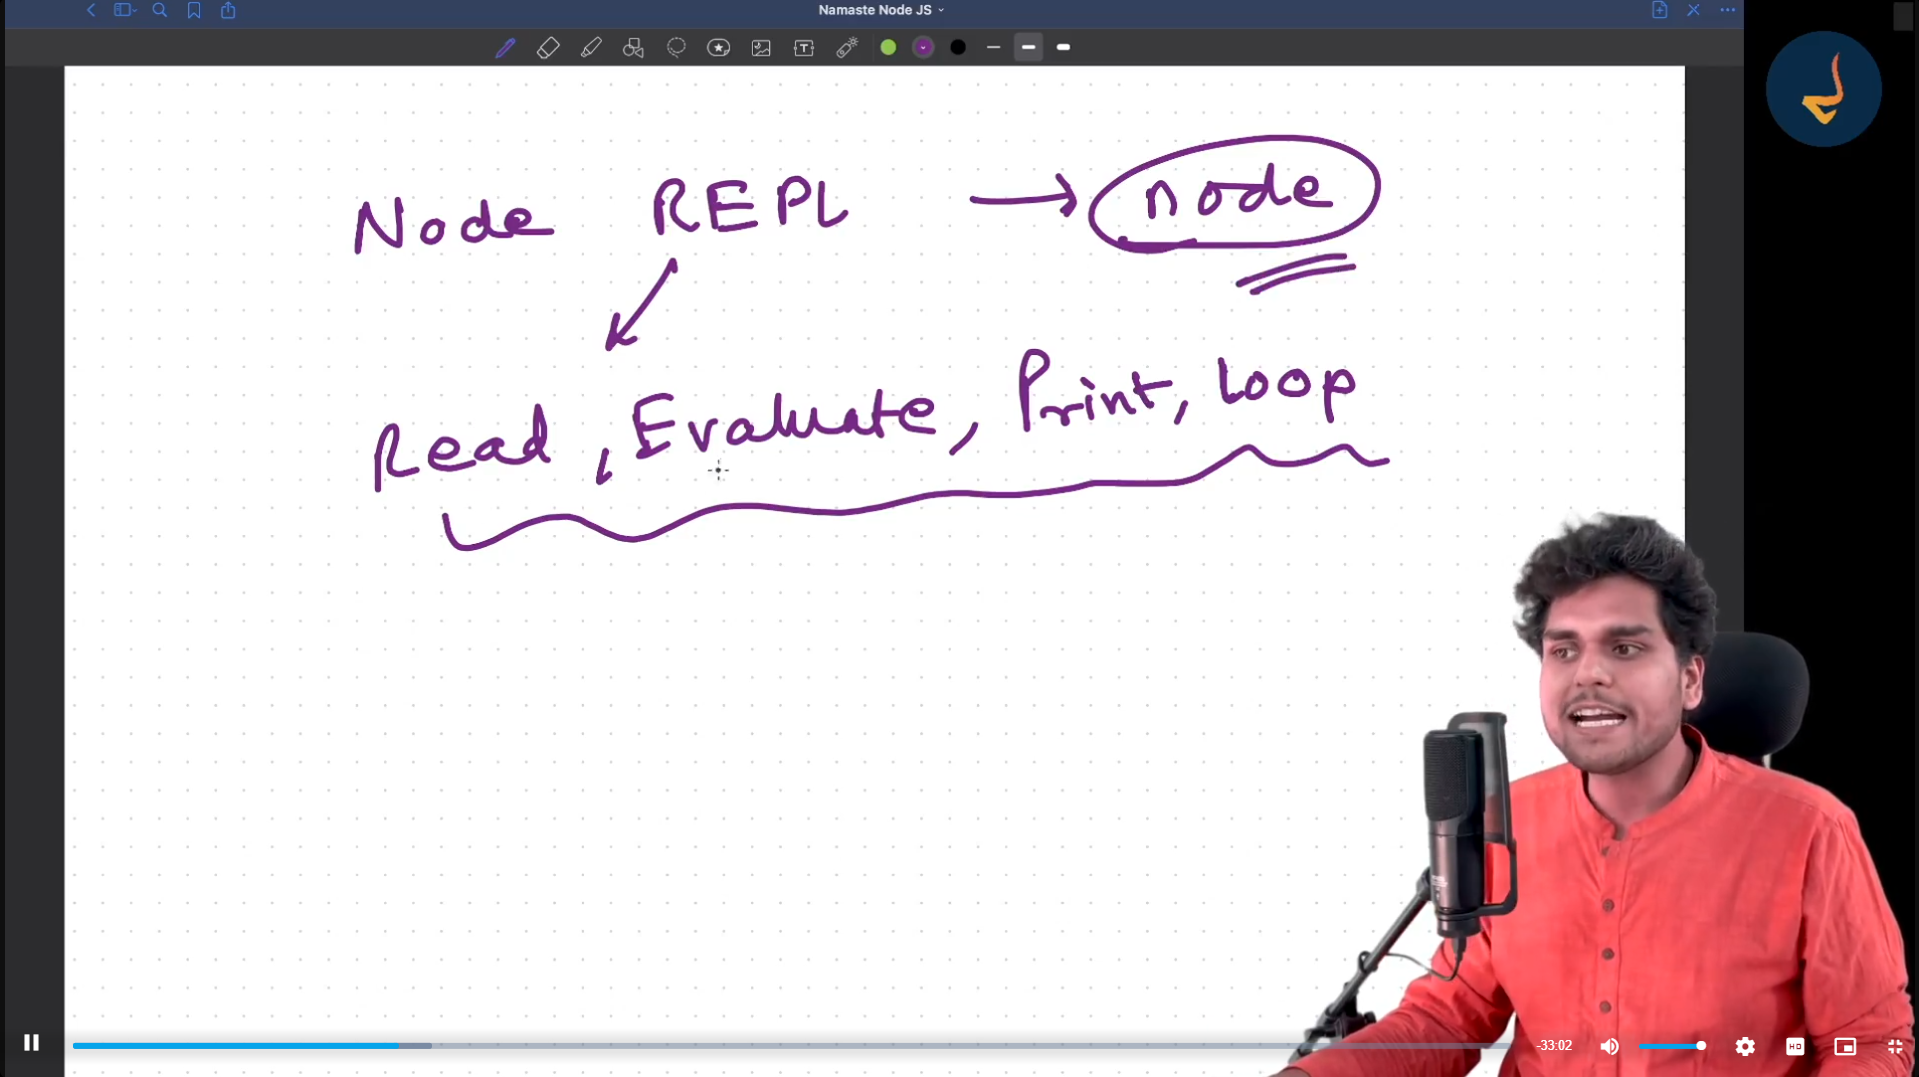 Namaste Node JS
Node REPL → node
Read, Evaluate, Print, Loop
-33:02
HD